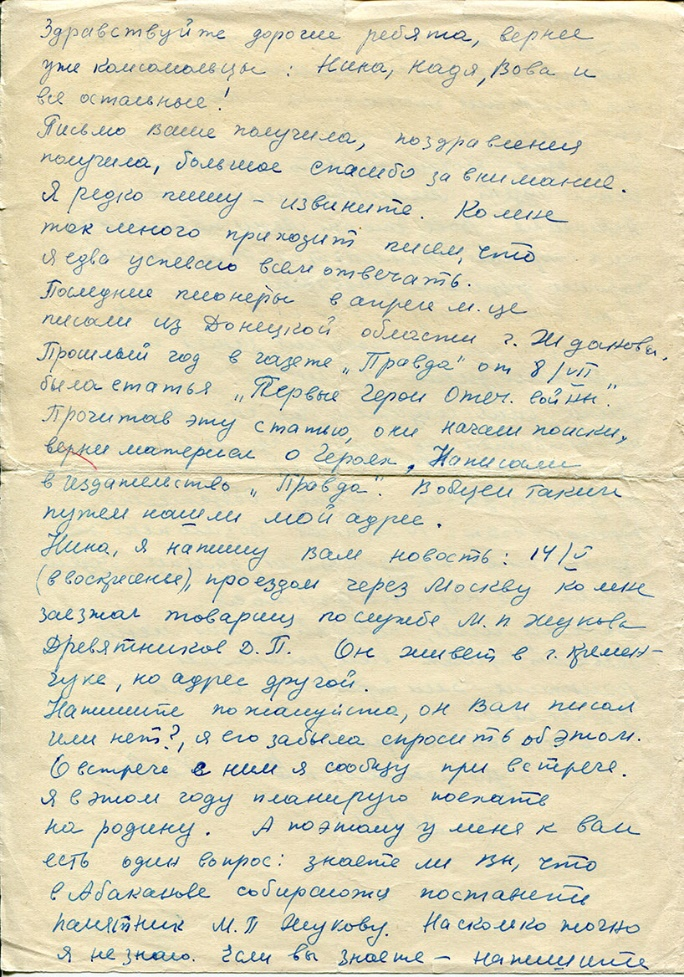 Здравствуйте дорогие ребята, вернее
уже комсомольцы: Нина, Надя, Вова и
все остальные!
Письмо Ваше получила, поздравления
получила, большое спасибо за внимание.
Я редко пишу – извините. Ко мне
так много приходит писем, что
я едва успеваю всем отвечать.
Последние пионеры в апреле м-це
писали из Донецкой области г. Жданова.
Прошлый год в газете „Правда" от 8/VII
была статья „Первые Герои Отеч. войны".
Прочитав эту статью, они начали поиски,
верни материал о Героях, Написали
в издательство „Правда". В общем таким
путем нашли мой адрес.
Нина, я напишу Вам новость: 14/V
(в воскресенье), проездом через Москву ко мне
заезжал товарищ по службе М.П Жукова
Древятников Д.П. Он живет в г. Кремен-
чуке, но адрес другой.
Напишите пожалуйста, он Вам писал
или нет?, я его забыла спросить об этом.
О встрече с ним я сообщу при встрече.
Я в этом году планирую поехать
на родину. А поэтому у меня к вам
есть один вопрос: знаете ли Вы, что
в Абаканове собираются поставить
памятник М.П Жукову. Насколько точно
я не знаю. Если вы знаете – напишите